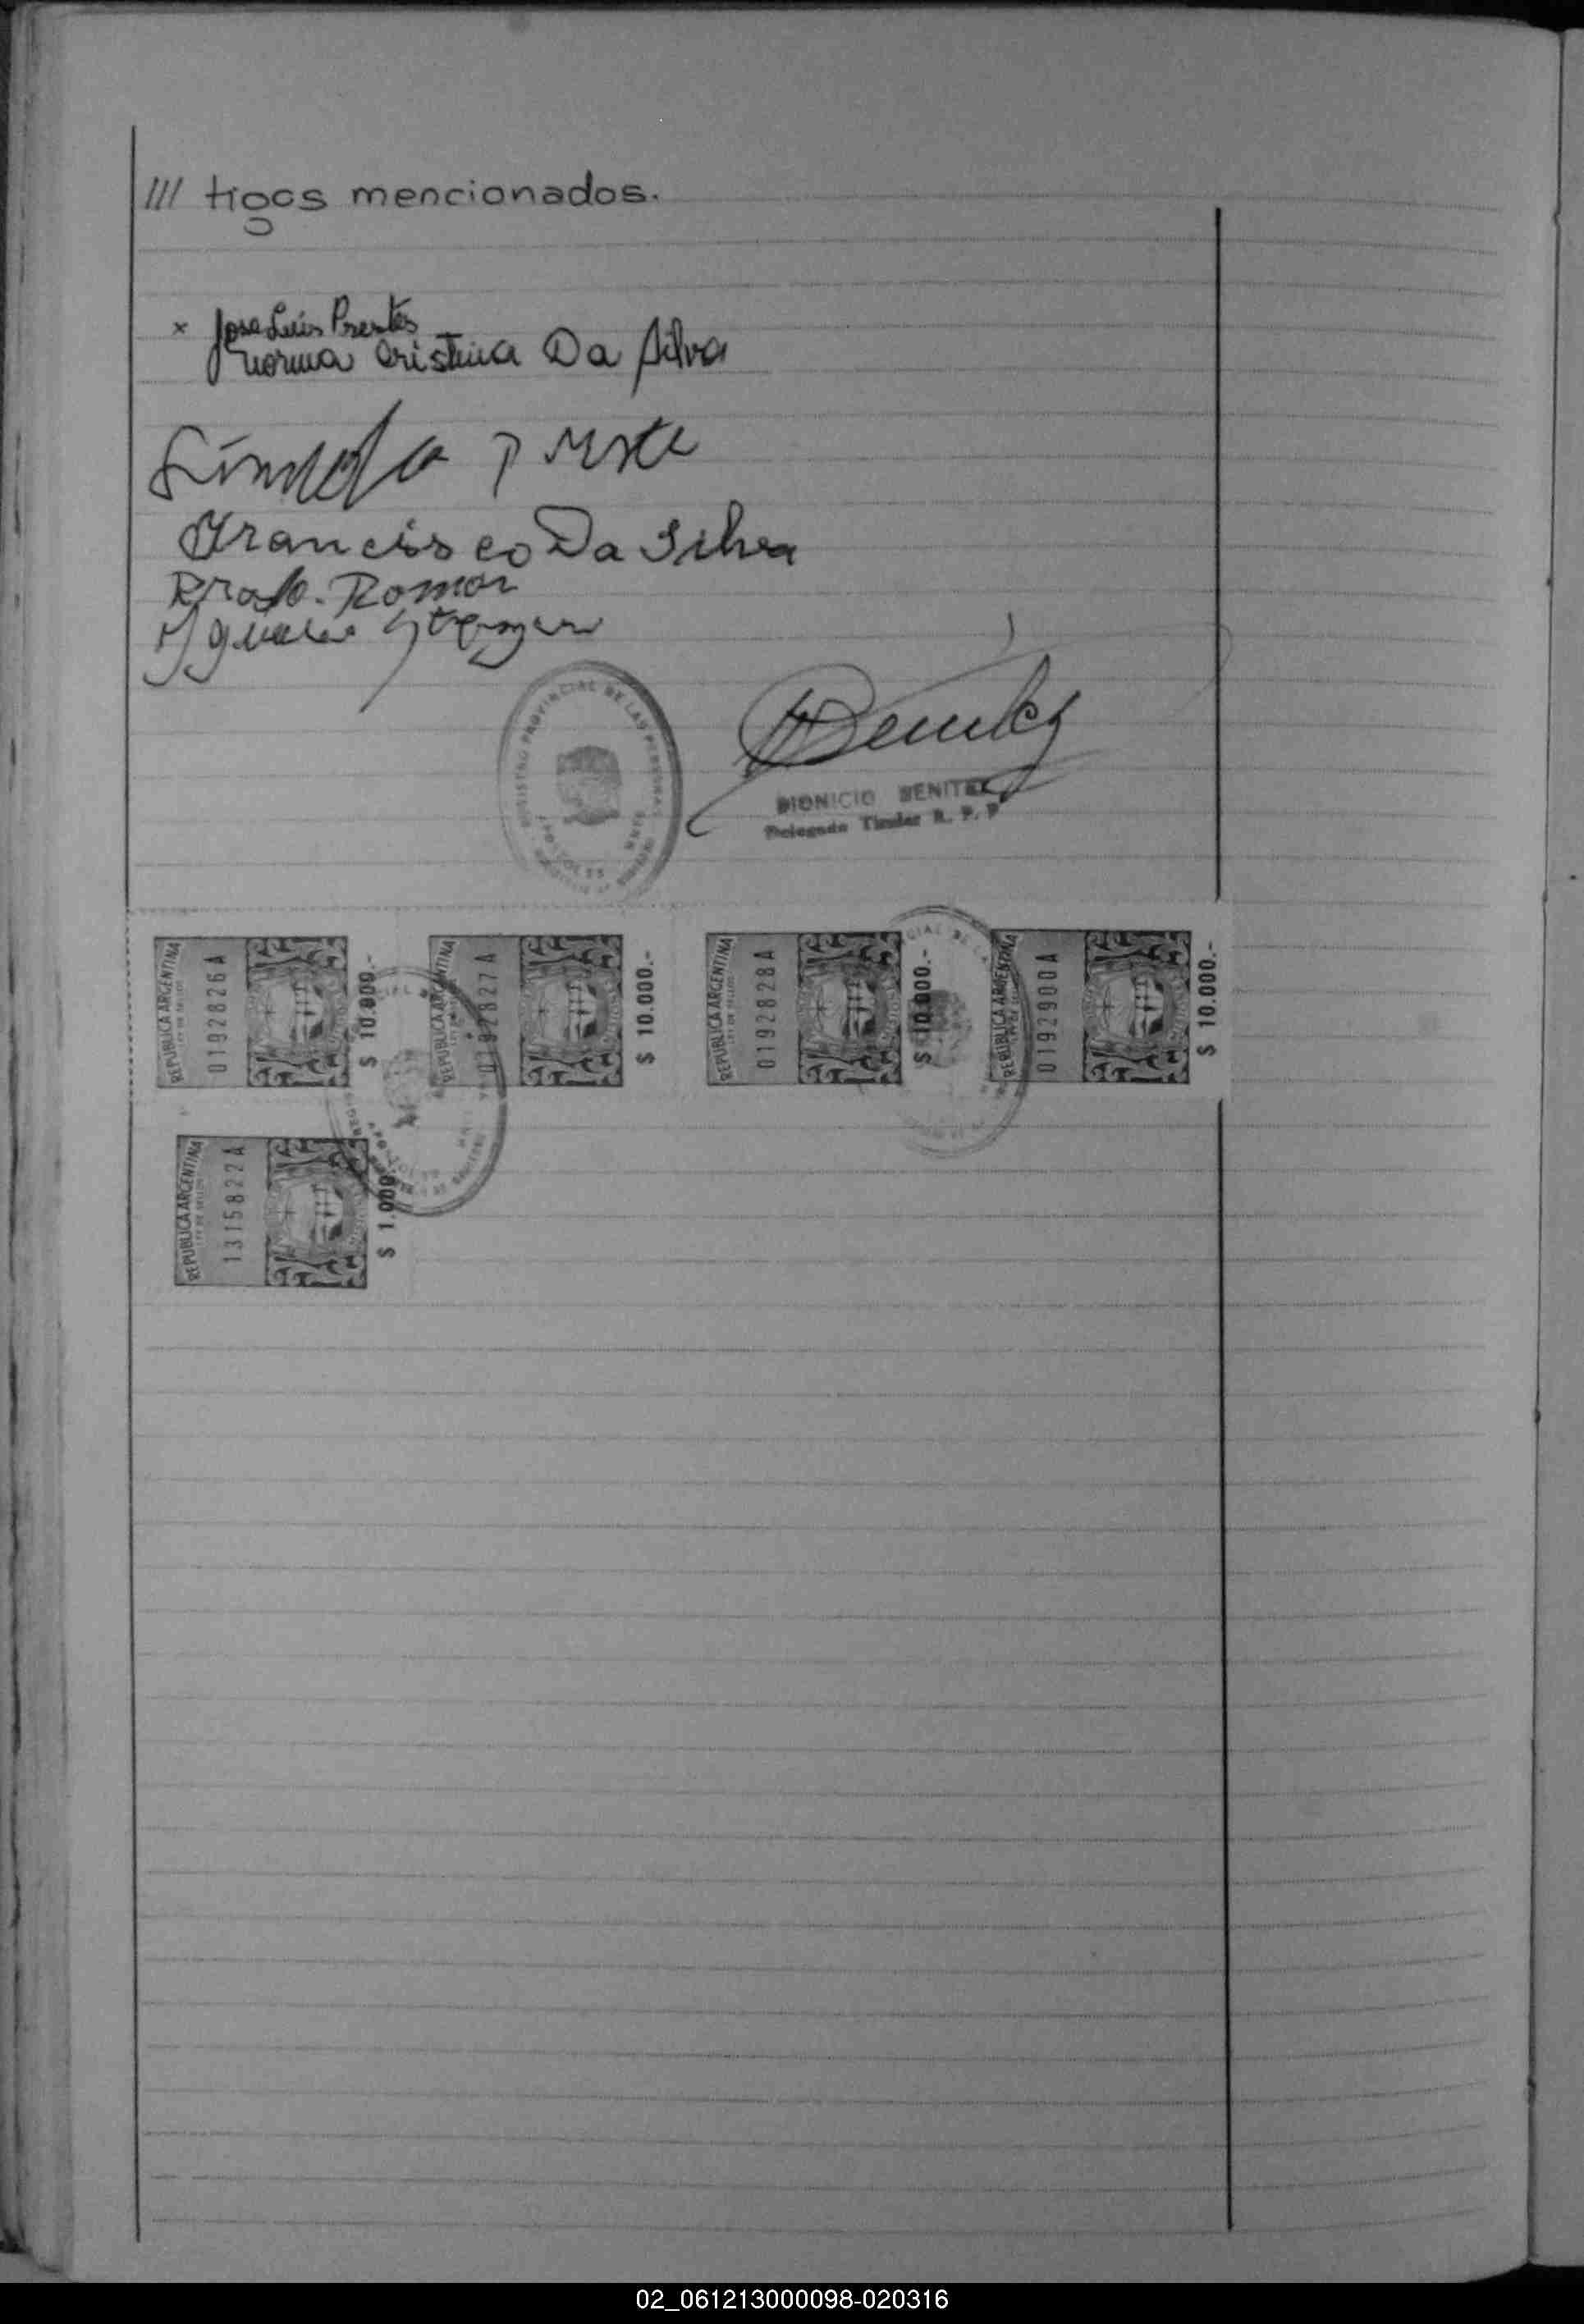 /// tigos mencionados.
x Jose Luis Prestes
Norma Cristina Da Silva
Francisco Da Silva
Román
REGISTRO PROVINCIAL DE LAS PERSONAS
DIONICIO BENITEZ
Delegado Titular R. P. P.
REPUBLICA ARGENTINA
LEY DE SELLOS
0192826A
$ 10.000.-
REPUBLICA ARGENTINA
0192827A
$ 10.000.-
REPUBLICA ARGENTINA
LEY DE SELLOS
0192828A
$ 10.000.-
REPUBLICA ARGENTINA
0192900A
$ 10.000.-
REPUBLICA ARGENTINA
LEY DE SELLOS
1315822A
$ 1.000.-
02_061213000098-020316